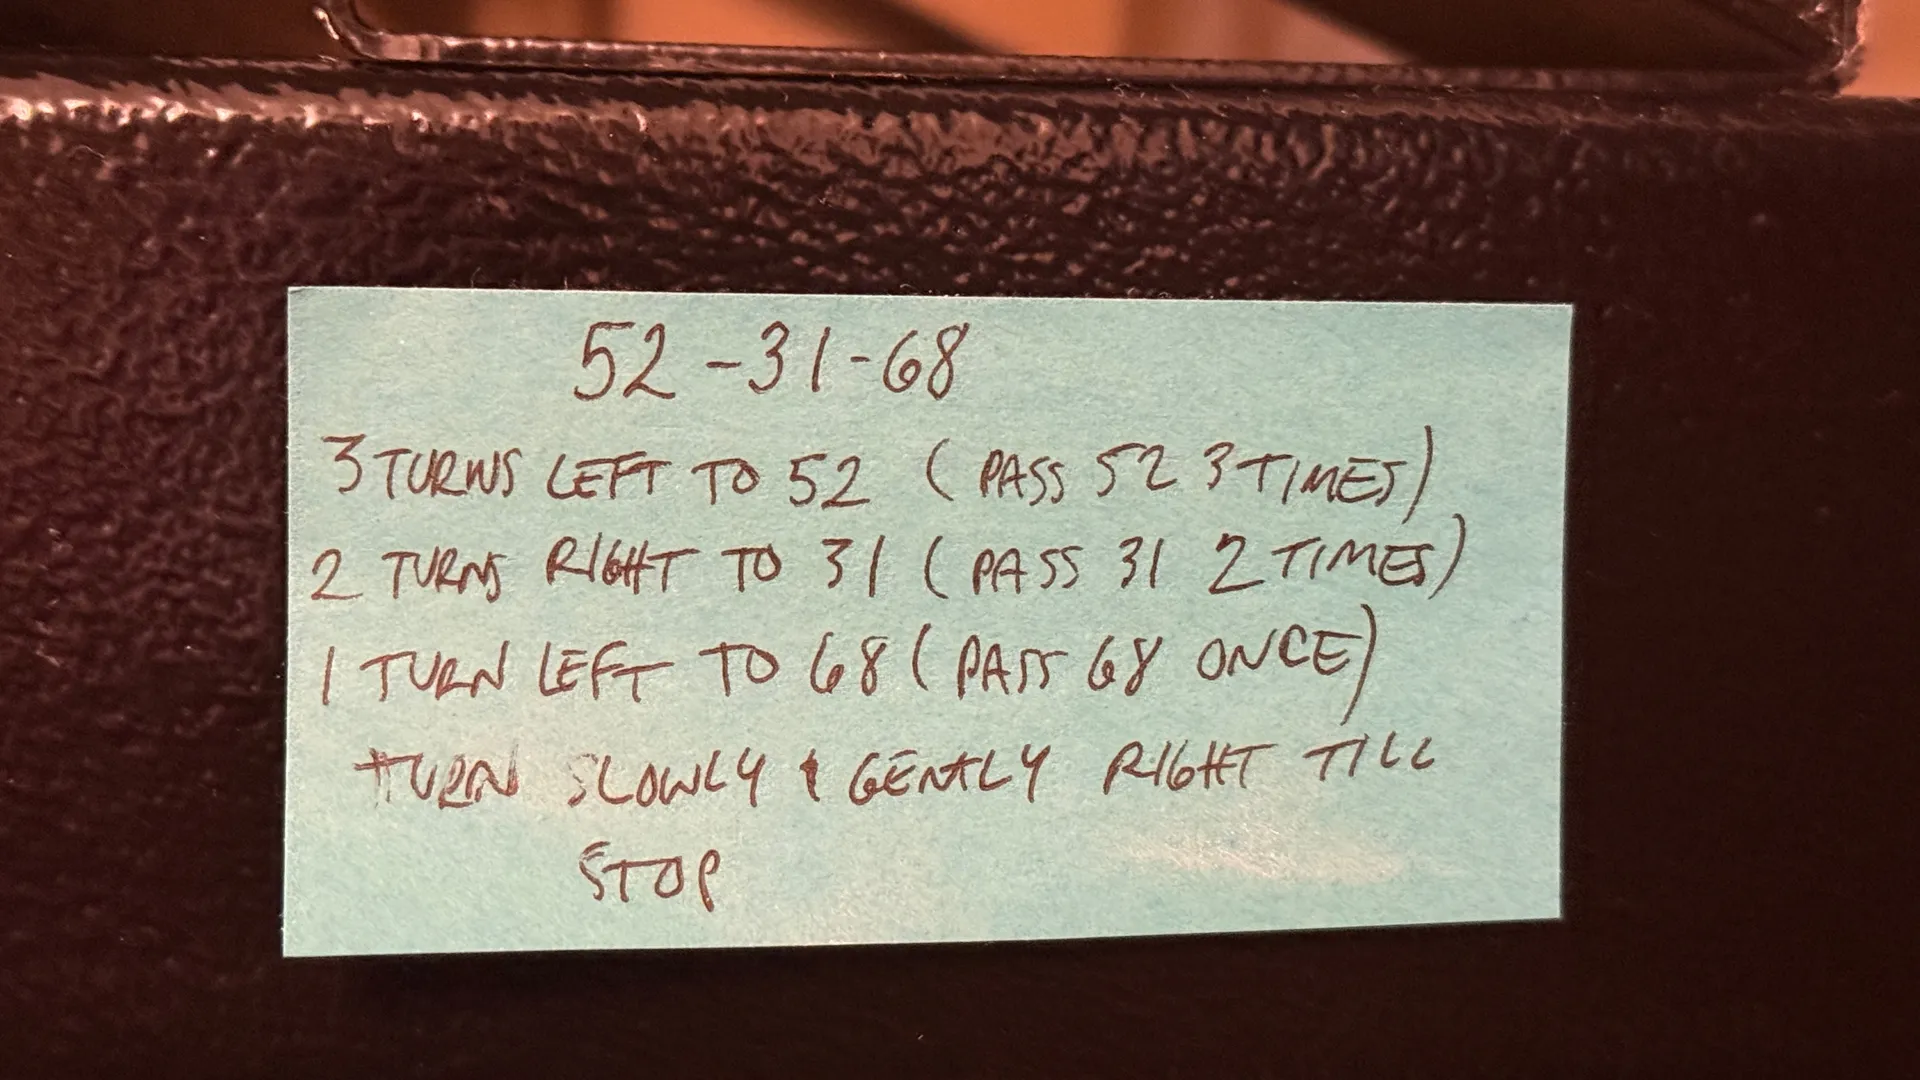 52-31-68
3 TURNS LEFT TO 52 (PASS 52 3 TIMES)
2 TURNS RIGHT TO 31 (PASS 31 2 TIMES)
1 TURN LEFT TO 68 (PASS 68 ONCE)
TURN SLOWLY & GENTLY RIGHT TILL
STOP